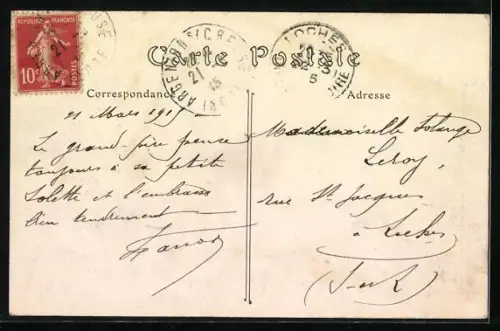 RÉPUBLIQUE FRANÇAISE
10c
POSTES
ARGENTON S/CREUSE
21
15
INDRE
LOCHES
Carte Postale
Correspondance
Adresse
21 Mars 1915
Le grand-père pense
toujours à sa petite
Solette et l'embrasse
bien tendrement
Mademoiselle Solange
Leroy,
rue St Jacques
à Loches
(I-et-L)